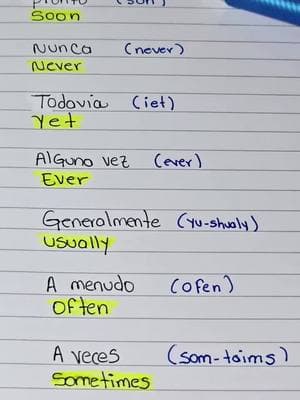 pronto (son)
Soon
Nunca (never)
Never
Todavia (iet)
yet
Alguna vez (ever)
Ever
Generalmente (yu-shualy)
usually
A menudo (ofen)
Often
A veces (som-taims)
Sometimes